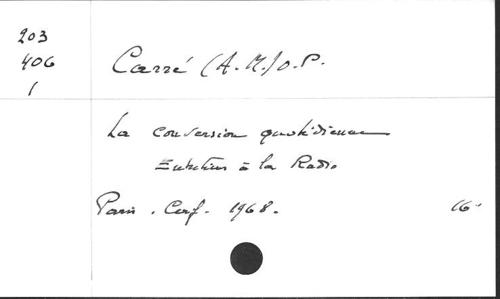 203
406
1
Carré (A.M.) O.P.
La conversion quotidienne
Entretiens à la Radio
Paris. Cerf. 1968. 16°